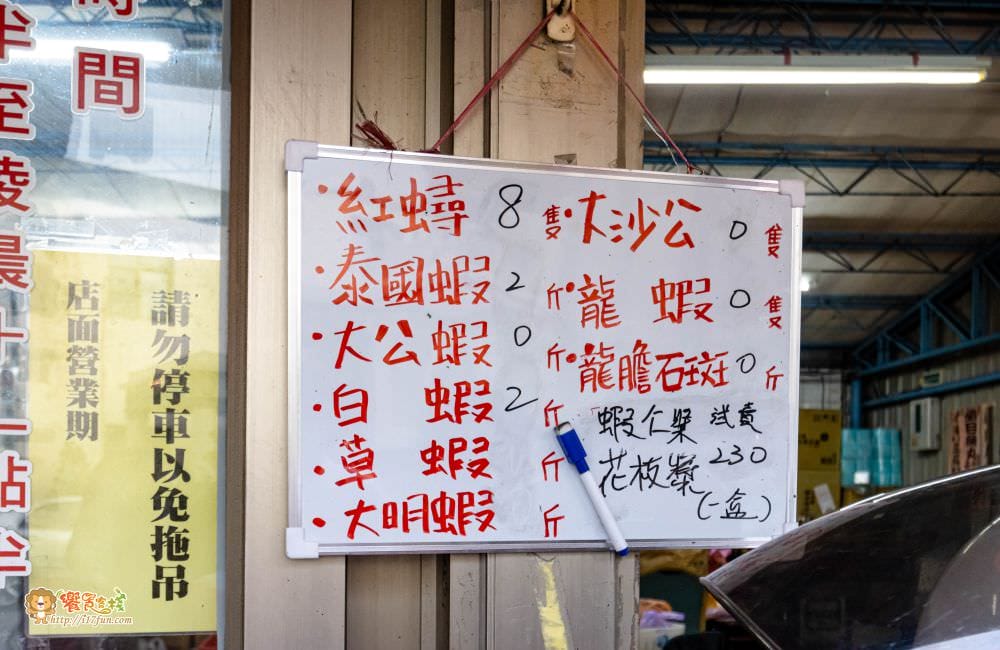 時間
半至凌晨十一點半
請勿停車以免拖吊
店面營業期
•紅蟳 8 隻
•泰國蝦 2 斤
•大公蝦 0 斤
•白蝦 2 斤
•草蝦 斤
•大明蝦 斤
•大沙公 0 隻
•龍蝦 0 隻
•龍膽石斑 0 斤
蝦仁漿 試賣
花枝漿 230
(一盒)
饗冒險棧
http://i17fun.com